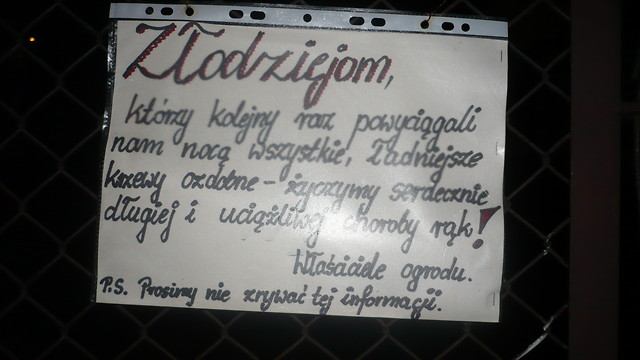 Złodziejom,
którzy kolejny raz powyciągali
nam nocą wszystkie, ładniejsze
krzewy ozdobne - życzymy serdecznie
długiej i uciążliwej choroby rąk!
Właściciele ogrodu.
P.S. Prosimy nie zrywać tej informacji.